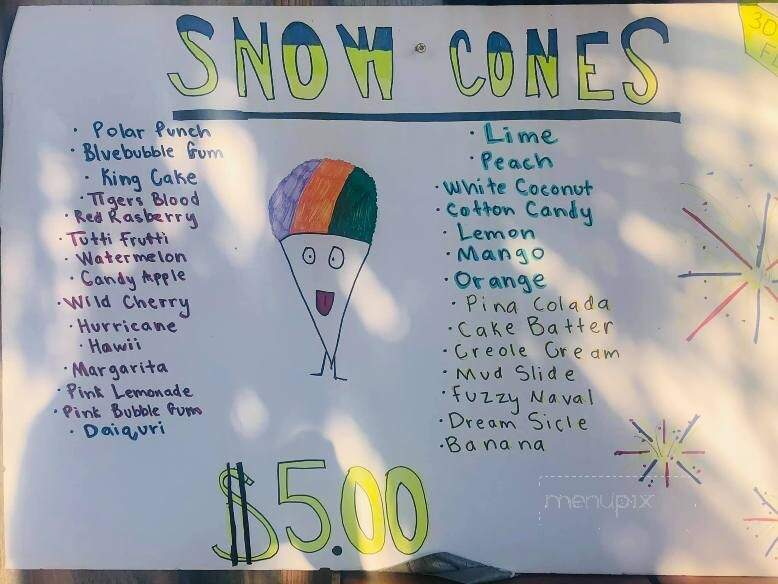 SNOW CONES
3D
FL
• Polar Punch
• Bluebubble Gum
• King Cake
• Tigers Blood
• Red Rasberry
• Tutti Frutti
• Watermelon
• Candy Apple
• Wild Cherry
• Hurricane
• Hawii
• Margarita
• Pink Lemonade
• Pink Bubble Gum
• Daiquri
• Lime
• Peach
• White Coconut
• Cotton Candy
• Lemon
• Mango
• Orange
• Pina Colada
• Cake Batter
• Creole Cream
• Mud Slide
• Fuzzy Naval
• Dream Sicle
• Banana
$5.00
menupix